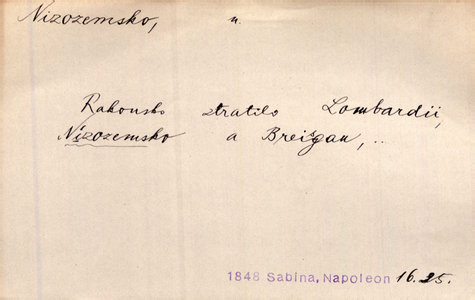 Nizozemsko, n.
Rakousko ztratilo Lombardii,
Nizozemsko a Breisgau, ..
1848 Sabina, Napoleon 16.25.